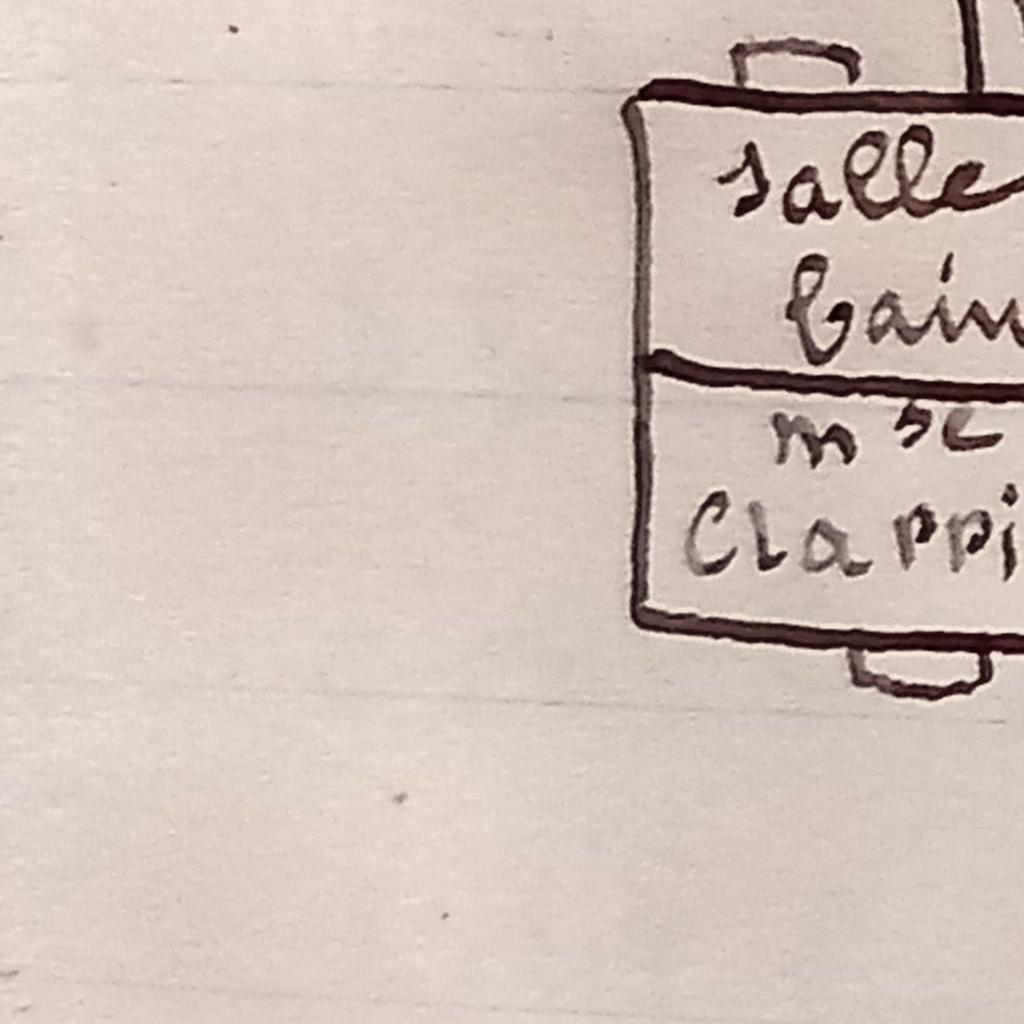 salle
bain
m se
Clappi